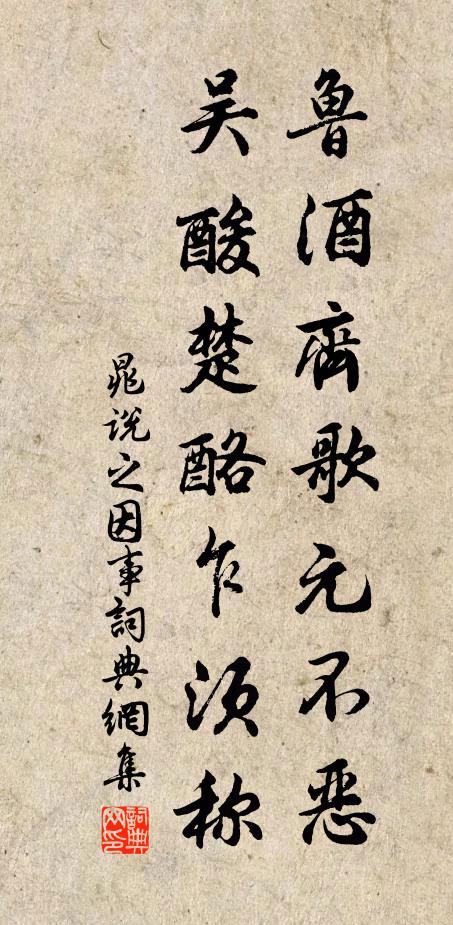 鲁酒齊歌元不恶
吴酸楚酪乍须称
晁说之因事詞典網集
詞典网印